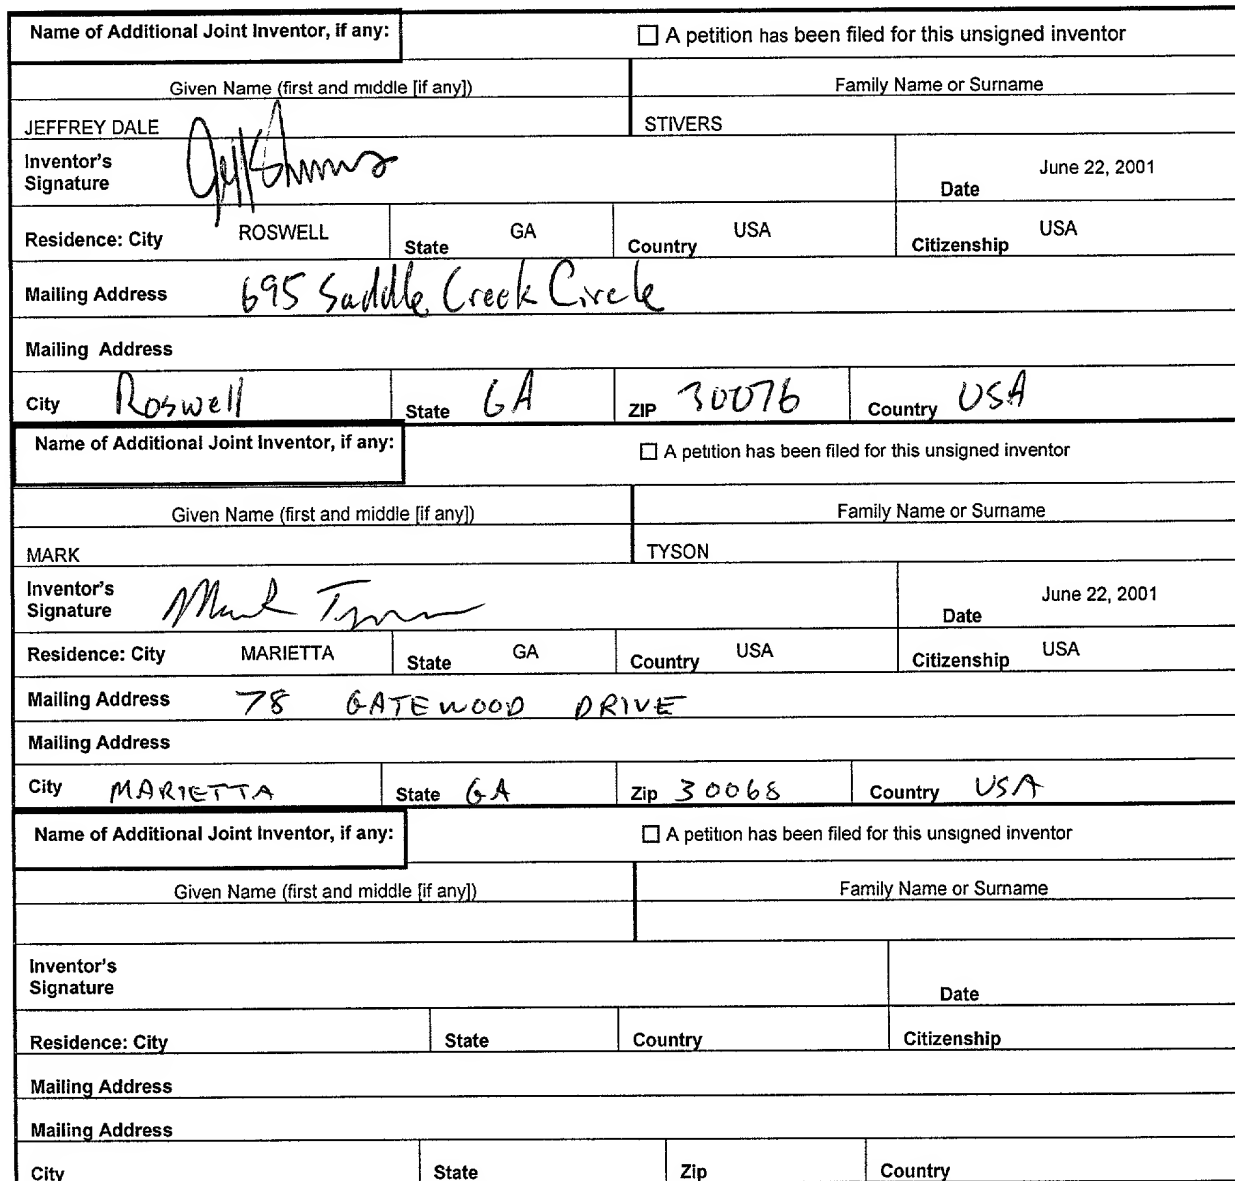 Name of Additional Joint Inventor, if any: ☐ A petition has been filed for this unsigned inventor
Given Name (first and middle [if any]) Family Name or Surname
JEFFREY DALE STIVERS
Inventor's Signature Date June 22, 2001
Residence: City ROSWELL State GA Country USA Citizenship USA
Mailing Address 695 Saddle Creek Circle
Mailing Address
City Roswell State GA ZIP 30076 Country USA
Name of Additional Joint Inventor, if any: ☐ A petition has been filed for this unsigned inventor
Given Name (first and middle [if any]) Family Name or Surname
MARK TYSON
Inventor's Signature Mark Tyson Date June 22, 2001
Residence: City MARIETTA State GA Country USA Citizenship USA
Mailing Address 78 GATEWOOD DRIVE
Mailing Address
City MARIETTA State GA Zip 30068 Country USA
Name of Additional Joint Inventor, if any: ☐ A petition has been filed for this unsigned inventor
Given Name (first and middle [if any]) Family Name or Surname
Inventor's Signature Date
Residence: City State Country Citizenship
Mailing Address
Mailing Address
City State Zip Country